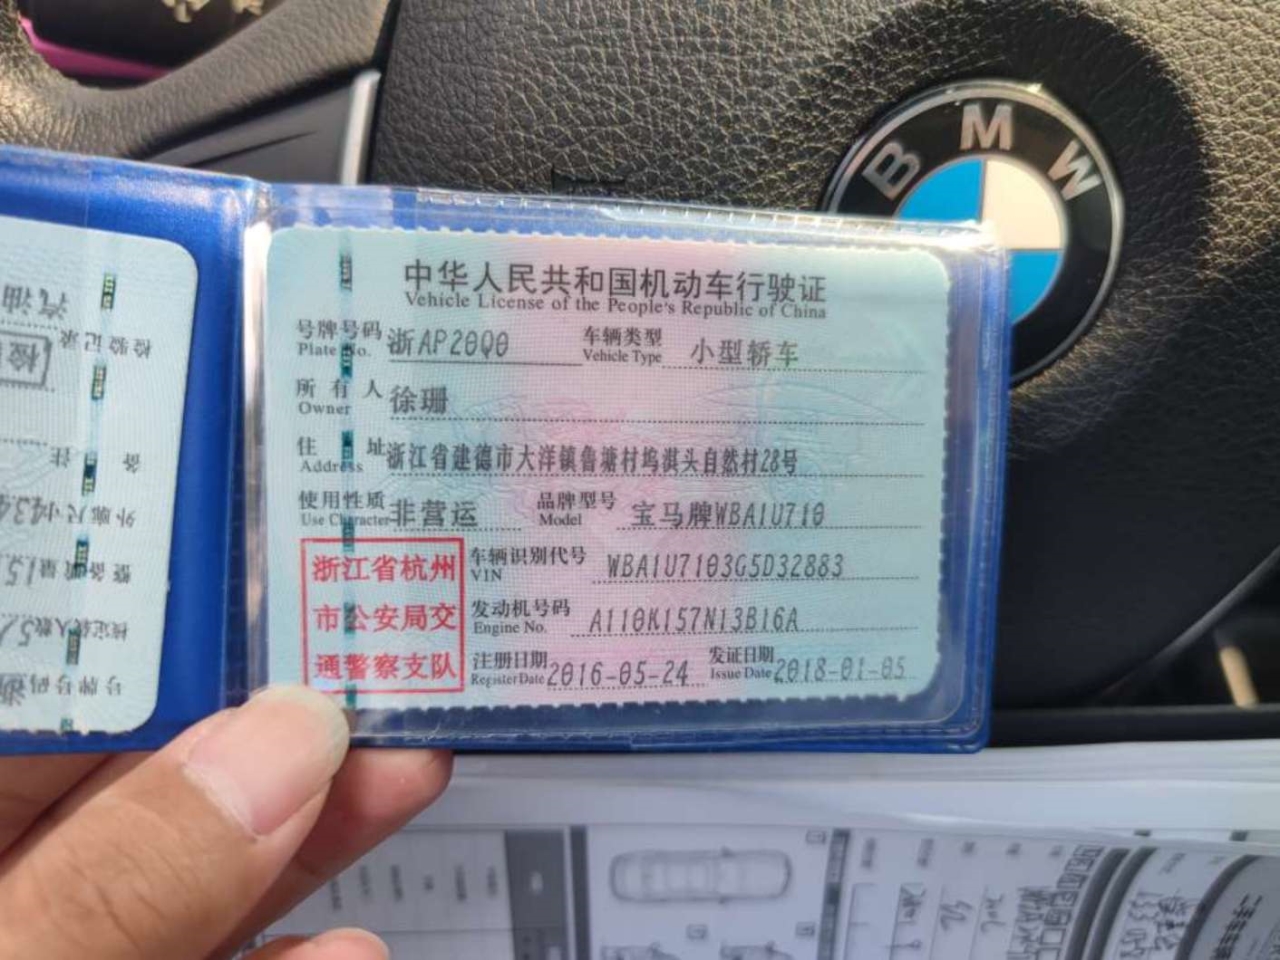 BMW
中华人民共和国机动车行驶证
Vehicle License of the People's Republic of China
号牌号码 浙AP20Q0 车辆类型 小型轿车
Plate No. Vehicle Type
所有人 徐珊
Owner
住址 浙江省建德市大洋镇鲁塘村坞淇头自然村28号
Address
使用性质 非营运 品牌型号 宝马牌WBA1U710
Use Character Model
浙江省杭州
市公安局交
通警察支队
车辆识别代号 WBA1U7103G5D32883
VIN
发动机号码 A110K157N13B16A
Engine No.
注册日期 2016-05-24 发证日期 2018-01-05
Register Date Issue Date
汽油
检验记录
备注
外廓尺寸434
整备质量151
核定载人数5人
号牌号码 浙